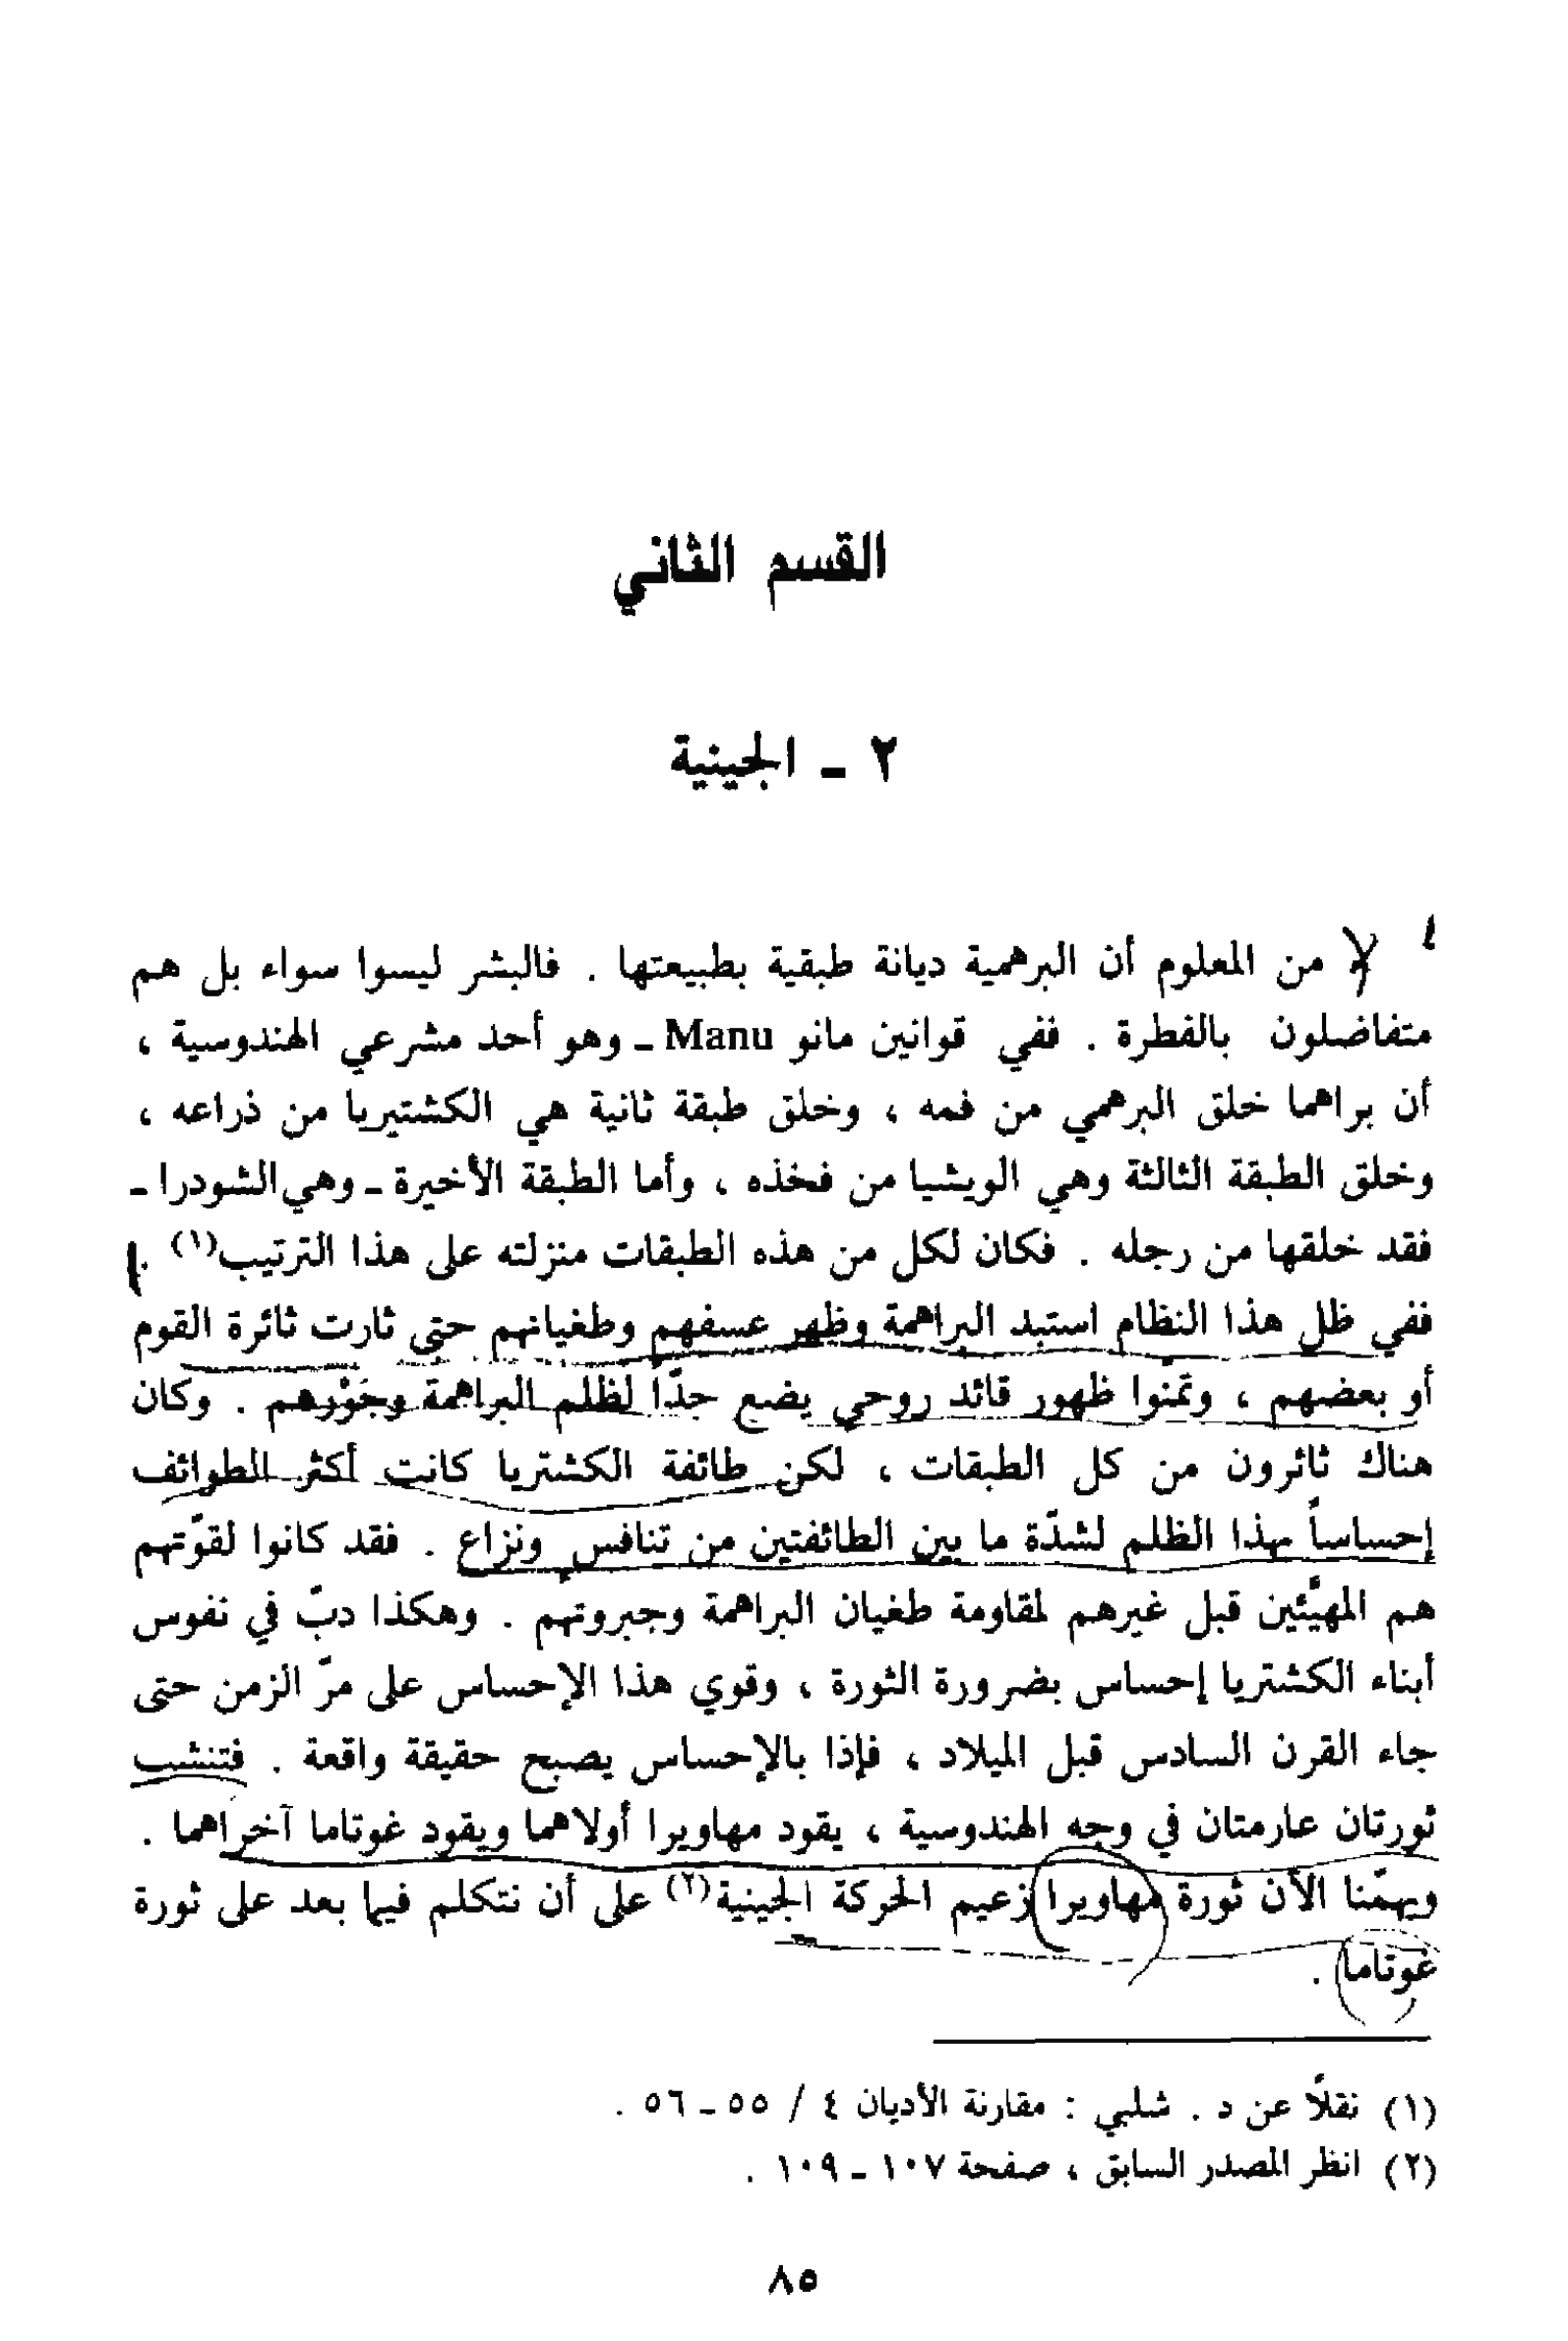 القسم الثاني
٢ - الجينية
من المعلوم أن البرهمية ديانة طبقية بطبيعتها . فالبشر ليسوا سواء بل هم
متفاضلون بالفطرة . ففي قوانين مانو Manu - وهو أحد مشرعي الهندوسية ،
أن براهما خلق البرهمي من فمه ، وخلق طبقة ثانية هي الكشتيريا من ذراعه ،
وخلق الطبقة الثالثة وهي الويشيا من فخذه ، وأما الطبقة الأخيرة - وهي الشودرا -
فقد خلقها من رجله . فكان لكل من هذه الطبقات منزلته على هذا الترتيب(١) .
ففي ظل هذا النظام استبد البراهمة وظهر عسفهم وطغيانهم حتى ثارت ثائرة القوم
أو بعضهم ، وتمنوا ظهور قائد روحي يضع حدّاً لظلم البراهمة وجَوْرهم . وكان
هناك ثائرون من كل الطبقات ، لكن طائفة الكشتريا كانت أكثر الطوائف
إحساساً بهذا الظلم لشدّة ما بين الطائفتين من تنافس ونزاع . فقد كانوا لقوّتهم
هم المهيّئين قبل غيرهم لمقاومة طغيان البراهمة وجبروتهم . وهكذا دبّ في نفوس
أبناء الكشتريا إحساس بضرورة الثورة ، وقوي هذا الإحساس على مرّ الزمن حتى
جاء القرن السادس قبل الميلاد ، فإذا بالإحساس يصبح حقيقة واقعة . فتنشب
ثورتان عارمتان في وجه الهندوسية ، يقود مهاويرا أولاهما ويقود غوتاما آخراهما .
ويهمّنا الآن ثورة مهاويرا زعيم الحركة الجينية(٢) على أن نتكلم فيما بعد على ثورة
غوتاما .
(١) نقلًا عن د . شلبي : مقارنة الأديان ٤ / ٥٥ - ٥٦ .
(٢) انظر المصدر السابق ، صفحة ١٠٧ - ١٠٩ .
٨٥